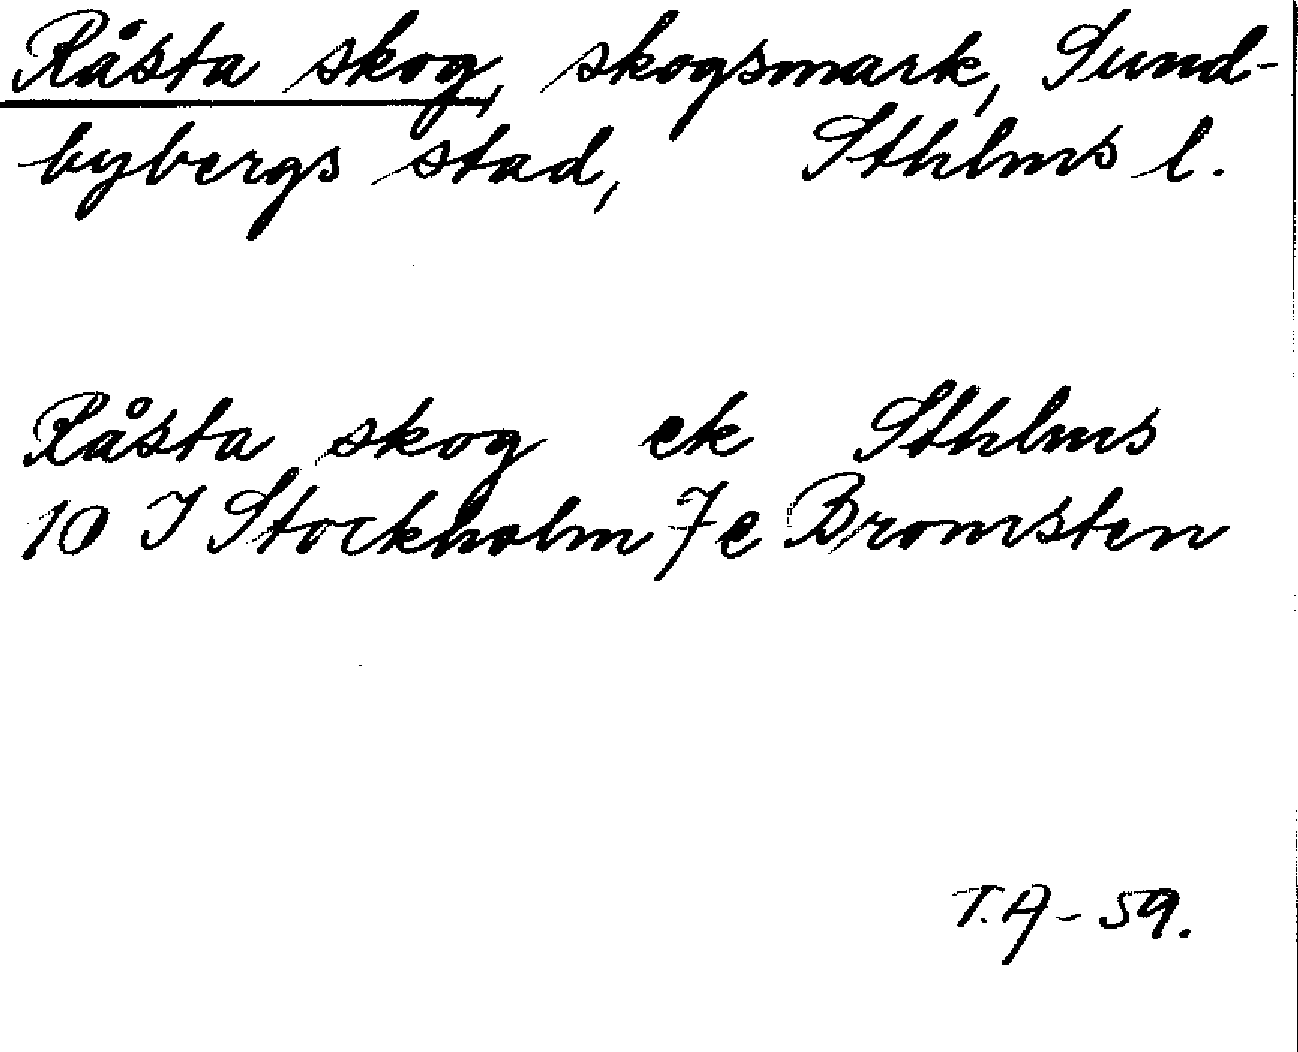 Råsta skog, skogsmark, Sund-
bybergs stad, Sthlms l.
Råsta skog ek Sthlms
10 I Stockholm 7e Bromsten
T.A - 59.